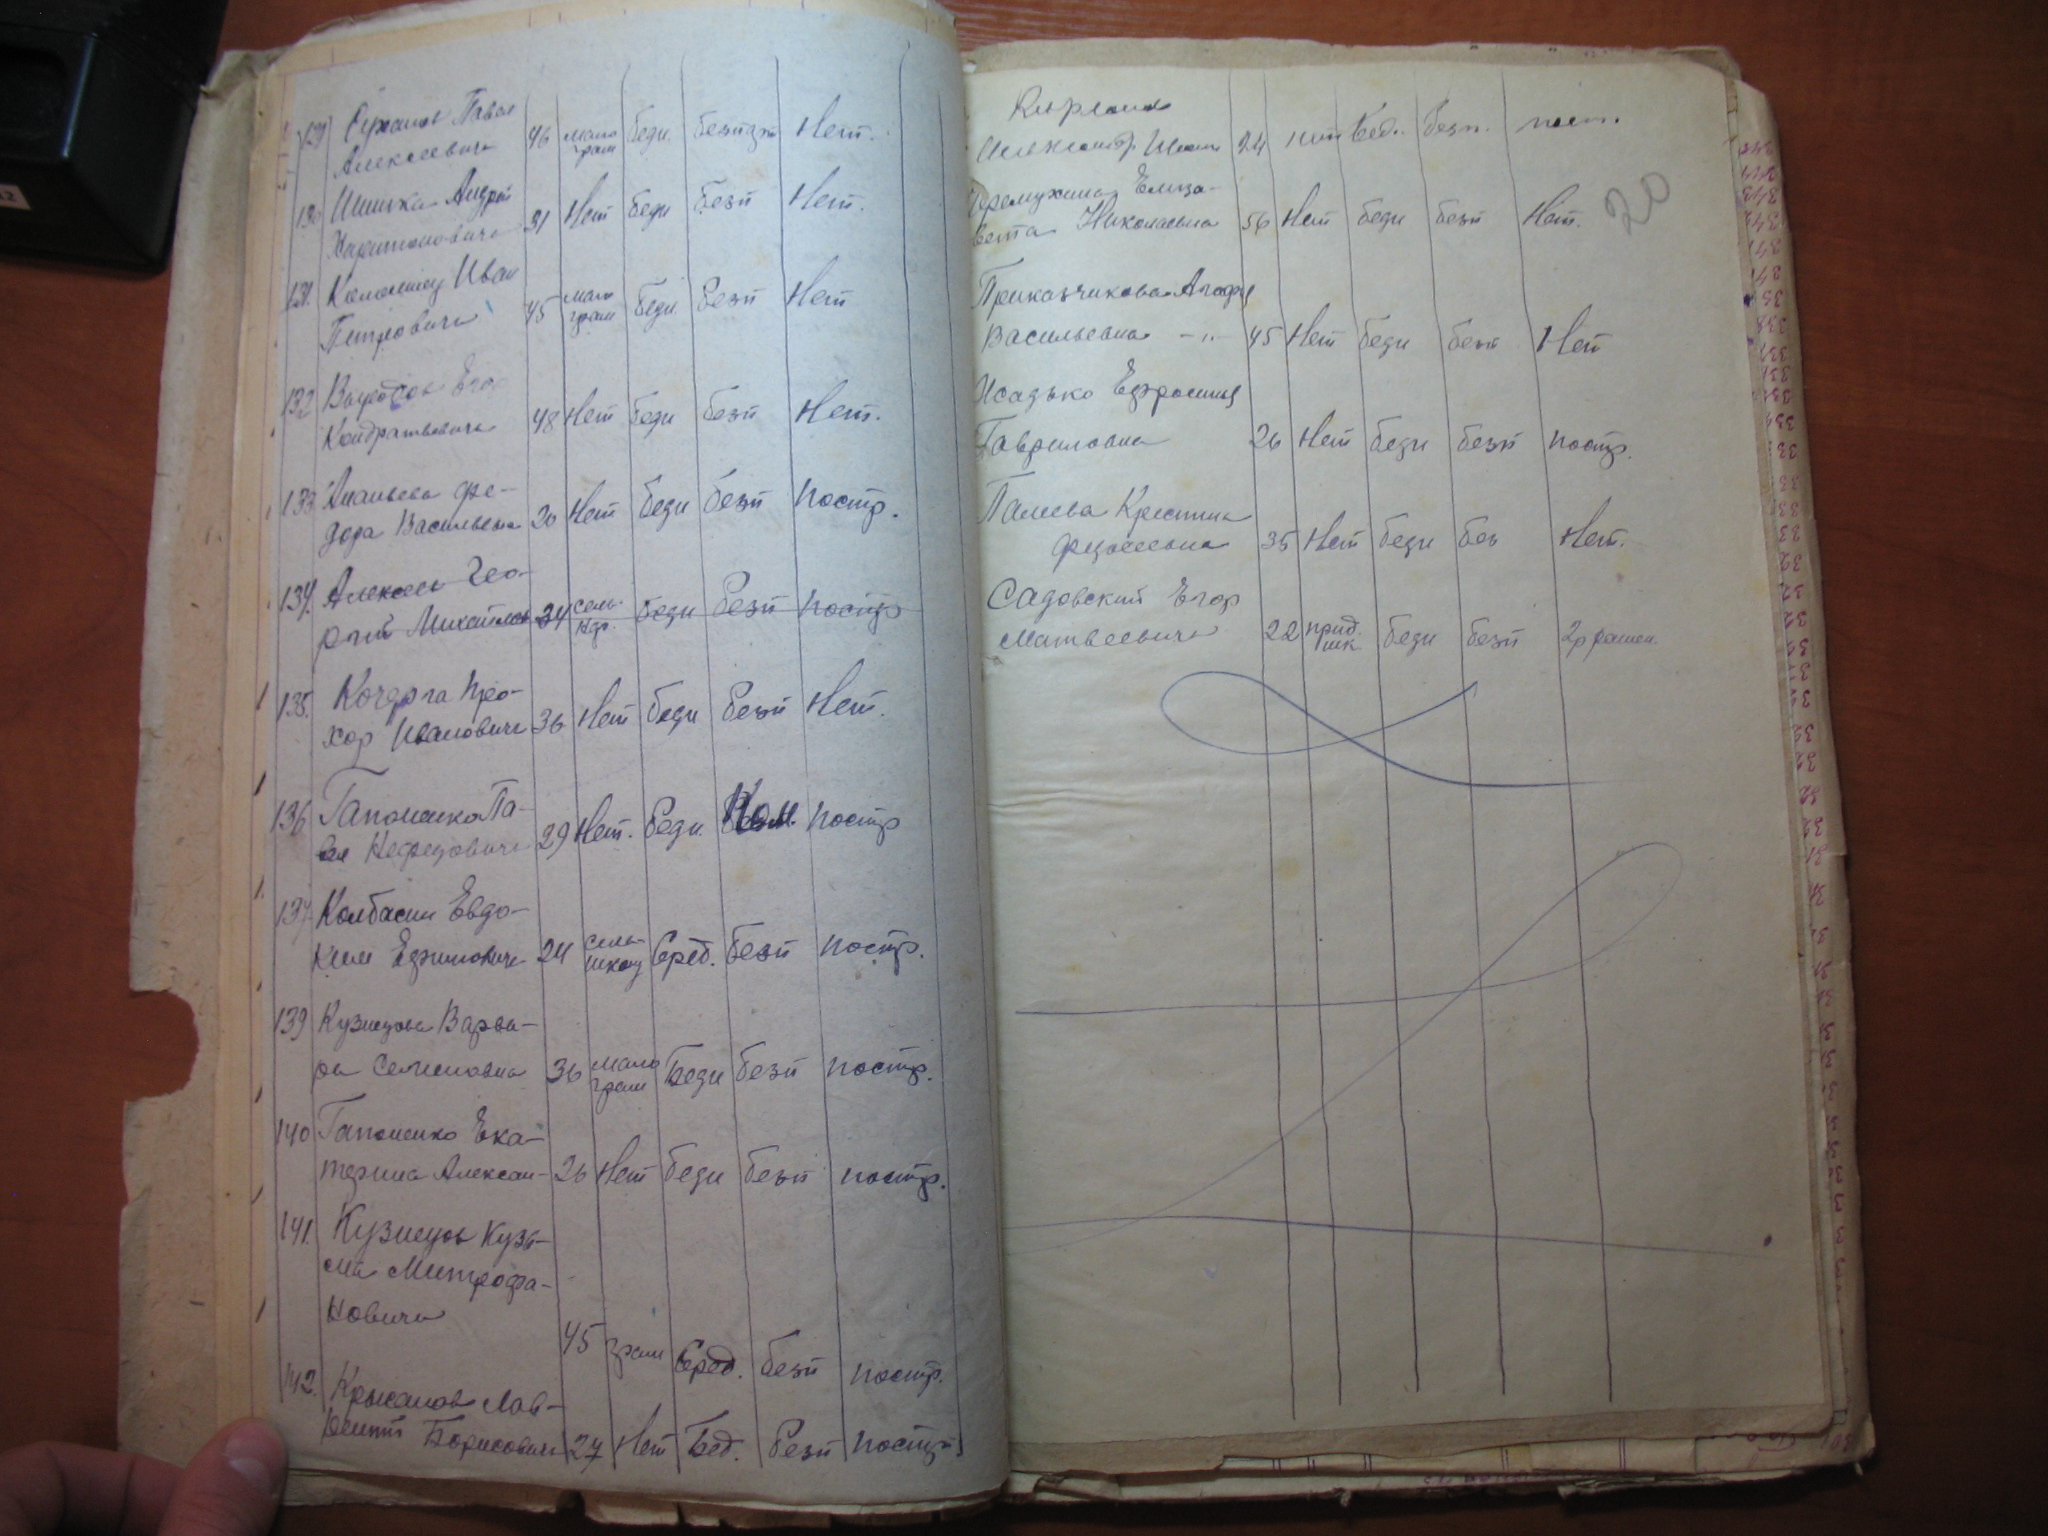 129 Суханов Павел
Алексеевич 46 мало грам бедн. безп Нет.
130 Шишка Андрей
Харитонович 31 Нет бедн безп Нет.
131. Коломиец Иван
Петрович 45 мало грам бедн безп Нет
132 Егор
Кондратьевич 48 Нет бедн безп Нет.
133 Ананьева Фе-
дора Васильевна 26 Нет бедн безп постр.
134. Алексеев Гео-
ргий Михайлов 34 сель- бедн безп постр
135. Кочерга Про-
хор Иванович 36 Нет бедн безп Нет.
136 Гапоненко Па-
вел Нефедович 29 Нет. бедн. Ком. постр
137 Колбасин Евдо-
ким Ефимович 24 сель- школу Серед. безп постр.
139 Кузнецова Варва-
ра Семеновна 36 мало грам Бедн безп постр.
140 Гапоненко Ека-
терина Алексан- 26 Нет бедн безп постр.
141. Кузнецов Кузь-
ма Митрофа-
нович
45 грам Серед. безп постр.
142. Крысанов Лав-
рентий Борисович 27 Нет Бед. безп постр
Александр Иван 24 нет бед. безп. пост.
20
Елиза-
вета Николаевна 56 Нет бедн безп Нет.
Приказчикова Агафья
Васильевна -"- 45 Нет бедн безп Нет
Исадько Ефросинья
Гавриловна 26 Нет бедн безп постр.
Палеева Кристина
35 Нет бедн без Нет.
Садовский Егор
Матвеевич 22 прид. шк. бедн безп